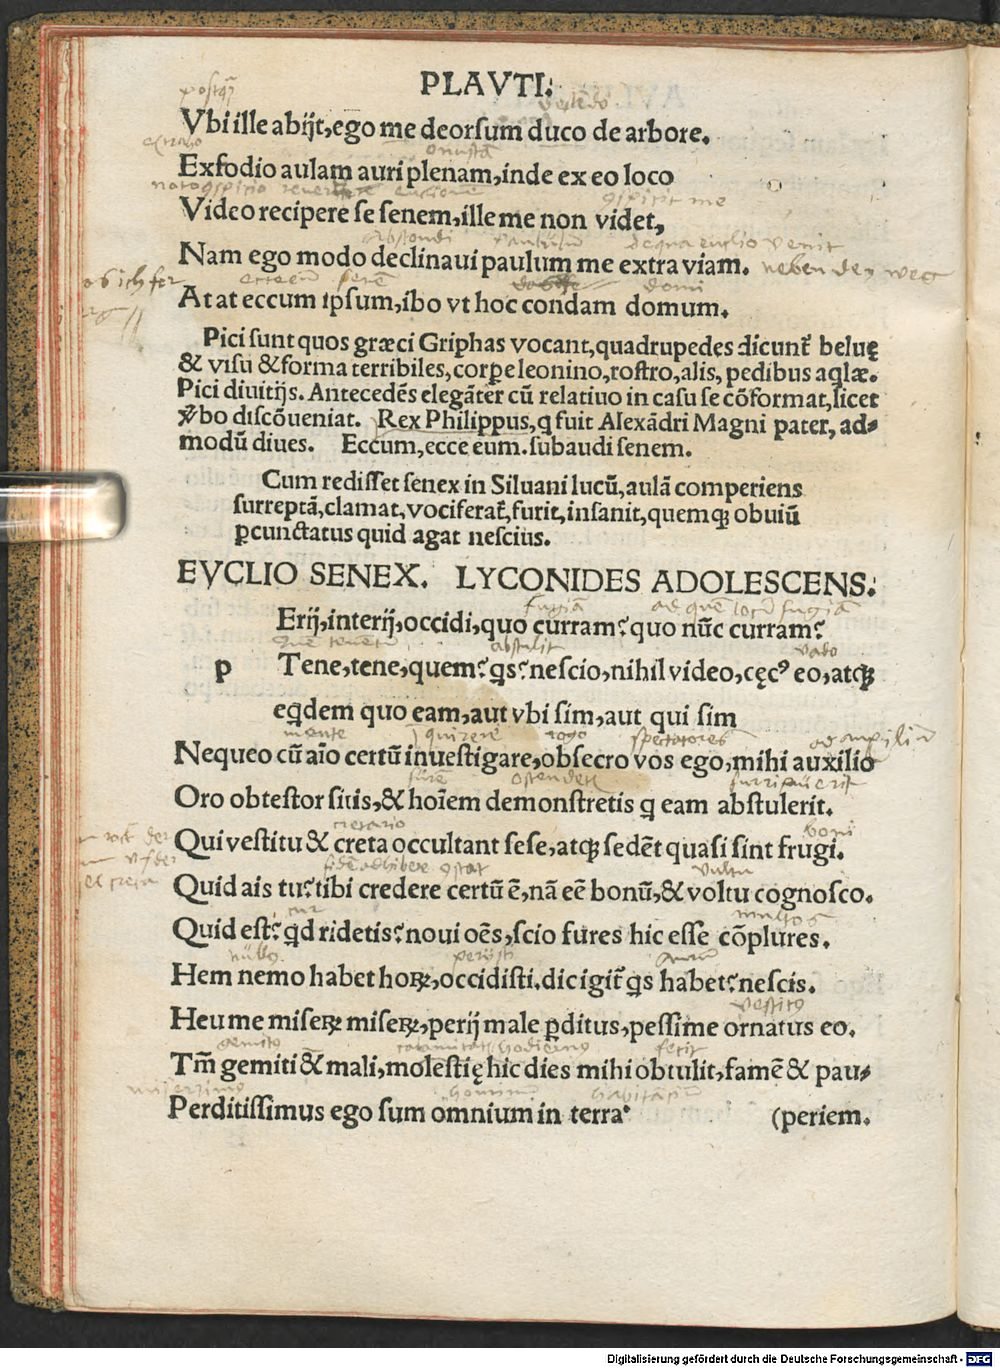 PLAVTI.
Vbi ille abijt, ego me deorsum duco de arbore.
Exfodio aulam auri plenam, inde ex eo loco
Video recipere se senem, ille me non videt,
Nam ego modo declinaui paulum me extra viam. neben den weg
At at eccum ipsum, ibo vt hoc condam domum.
Pici sunt quos græci Griphas vocant, quadrupedes dicunt᷑ beluę
& visu & forma terribiles, corꝑe leonino, rostro, alis, pedibus aq̃læ.
Pici diuitijs. Antecedẽs elegãter cũ relatiuo in casu se cõformat, licet
ꝟbo discõueniat. Rex Philippus, q̃ fuit Alexãdri Magni pater, ad-
modũ diues. Eccum, ecce eum. subaudi senem.
Cum redisset senex in Siluani lucũ, aulã comperiens
surreptã, clamat, vociferat᷑, furit, insanit, quemqꝫ obuiũ
ꝑcunctatus quid agat nescius.
EVCLIO SENEX. LYCONIDES ADOLESCENS.
fugiã ad quẽ locũ fugiã
Erij, interij, occidi, quo curram? quo nũc curram?
abstulit vado
p Tene, tene, quem? q̃s? nescio, nihil video, cęcꝰ eo, atqꝫ
eq̃dem quo eam, aut vbi sim, aut qui sim
mente rogo spectatores
Nequeo cũ aĩo certũ inuestigare, obsecro vos ego, mihi auxilio
Oro obtestor sitis, & hoĩem demonstretis q̃ eam abstulerit.
boni
Qui vestitu & creta occultant sese, atqꝫ sedẽt quasi sint frugi.
vultu
Quid ais tu? tibi credere certũ ẽ, nã eẽ bonũ, & voltu cognosco.
cur multos
Quid est? q̃d ridetis? noui oẽs, scio fures hic esse cõplures.
Hem nemo habet hoꝝ, occidisti. dic igit᷑ q̃s habet? nescis.
Heu me miseꝝ miseꝝ, perij male ꝑditus, pessime ornatus eo.
fecit
Tm̃ gemiti & mali, molestię hic dies mihi obtulit, famẽ & pau-
Perditissimus ego sum omnium in terra (periem.
Digitalisierung gefördert durch die Deutsche Forschungsgemeinschaft - DFG